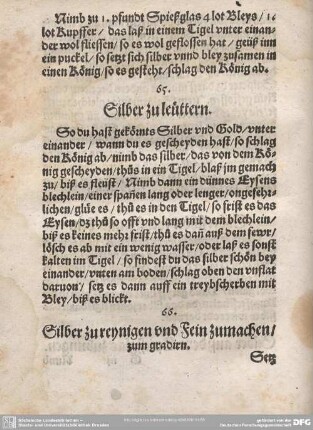 Nimb zu 1. pfundt Spießglas 4 lot Bleys / 16
lot Kupffer / das laß in einem Tigel vnter einan-
der wol fliessen / so es wol geflossen hat / geüß inn
ein puckel / so setzt sich silber vnnd bley zusamen in
einen König / so es gesteht / schlag den König ab.
65.
Silber zu leüttern.
So du hast gekönts Silber vnd Gold / vnter
einander / wann du es gescheyden hast / so schlag
den König ab / nimb das silber / das von dem Kö-
nig gescheyden / thüs in ein Tigel / blaß jm gemach
zu / biß es fleüst / Nimb dann ein dünnes Eysens
blechlein / einer spañen lang oder lenger / ongesehr-
lichen / glüe es / thü es in den Tigel / so frist es das
Eysen / dz thü so offt vnd lang mit dem blechlein /
biß es keines mehr frist / thü es dañ auß dem fewr /
lösch es ab mit ein wenig wasser / oder laß es sonst
kalten im Tigel / so findest du das silber schön bey
einander / vnten am boden / schlag oben den vnflat
daruon / setz es dann auff ein treybscherben mit
Bley / biß es blickt.
66.
Silber zu reynigen vnd Fein zumachen /
zum gradirn.
Setz